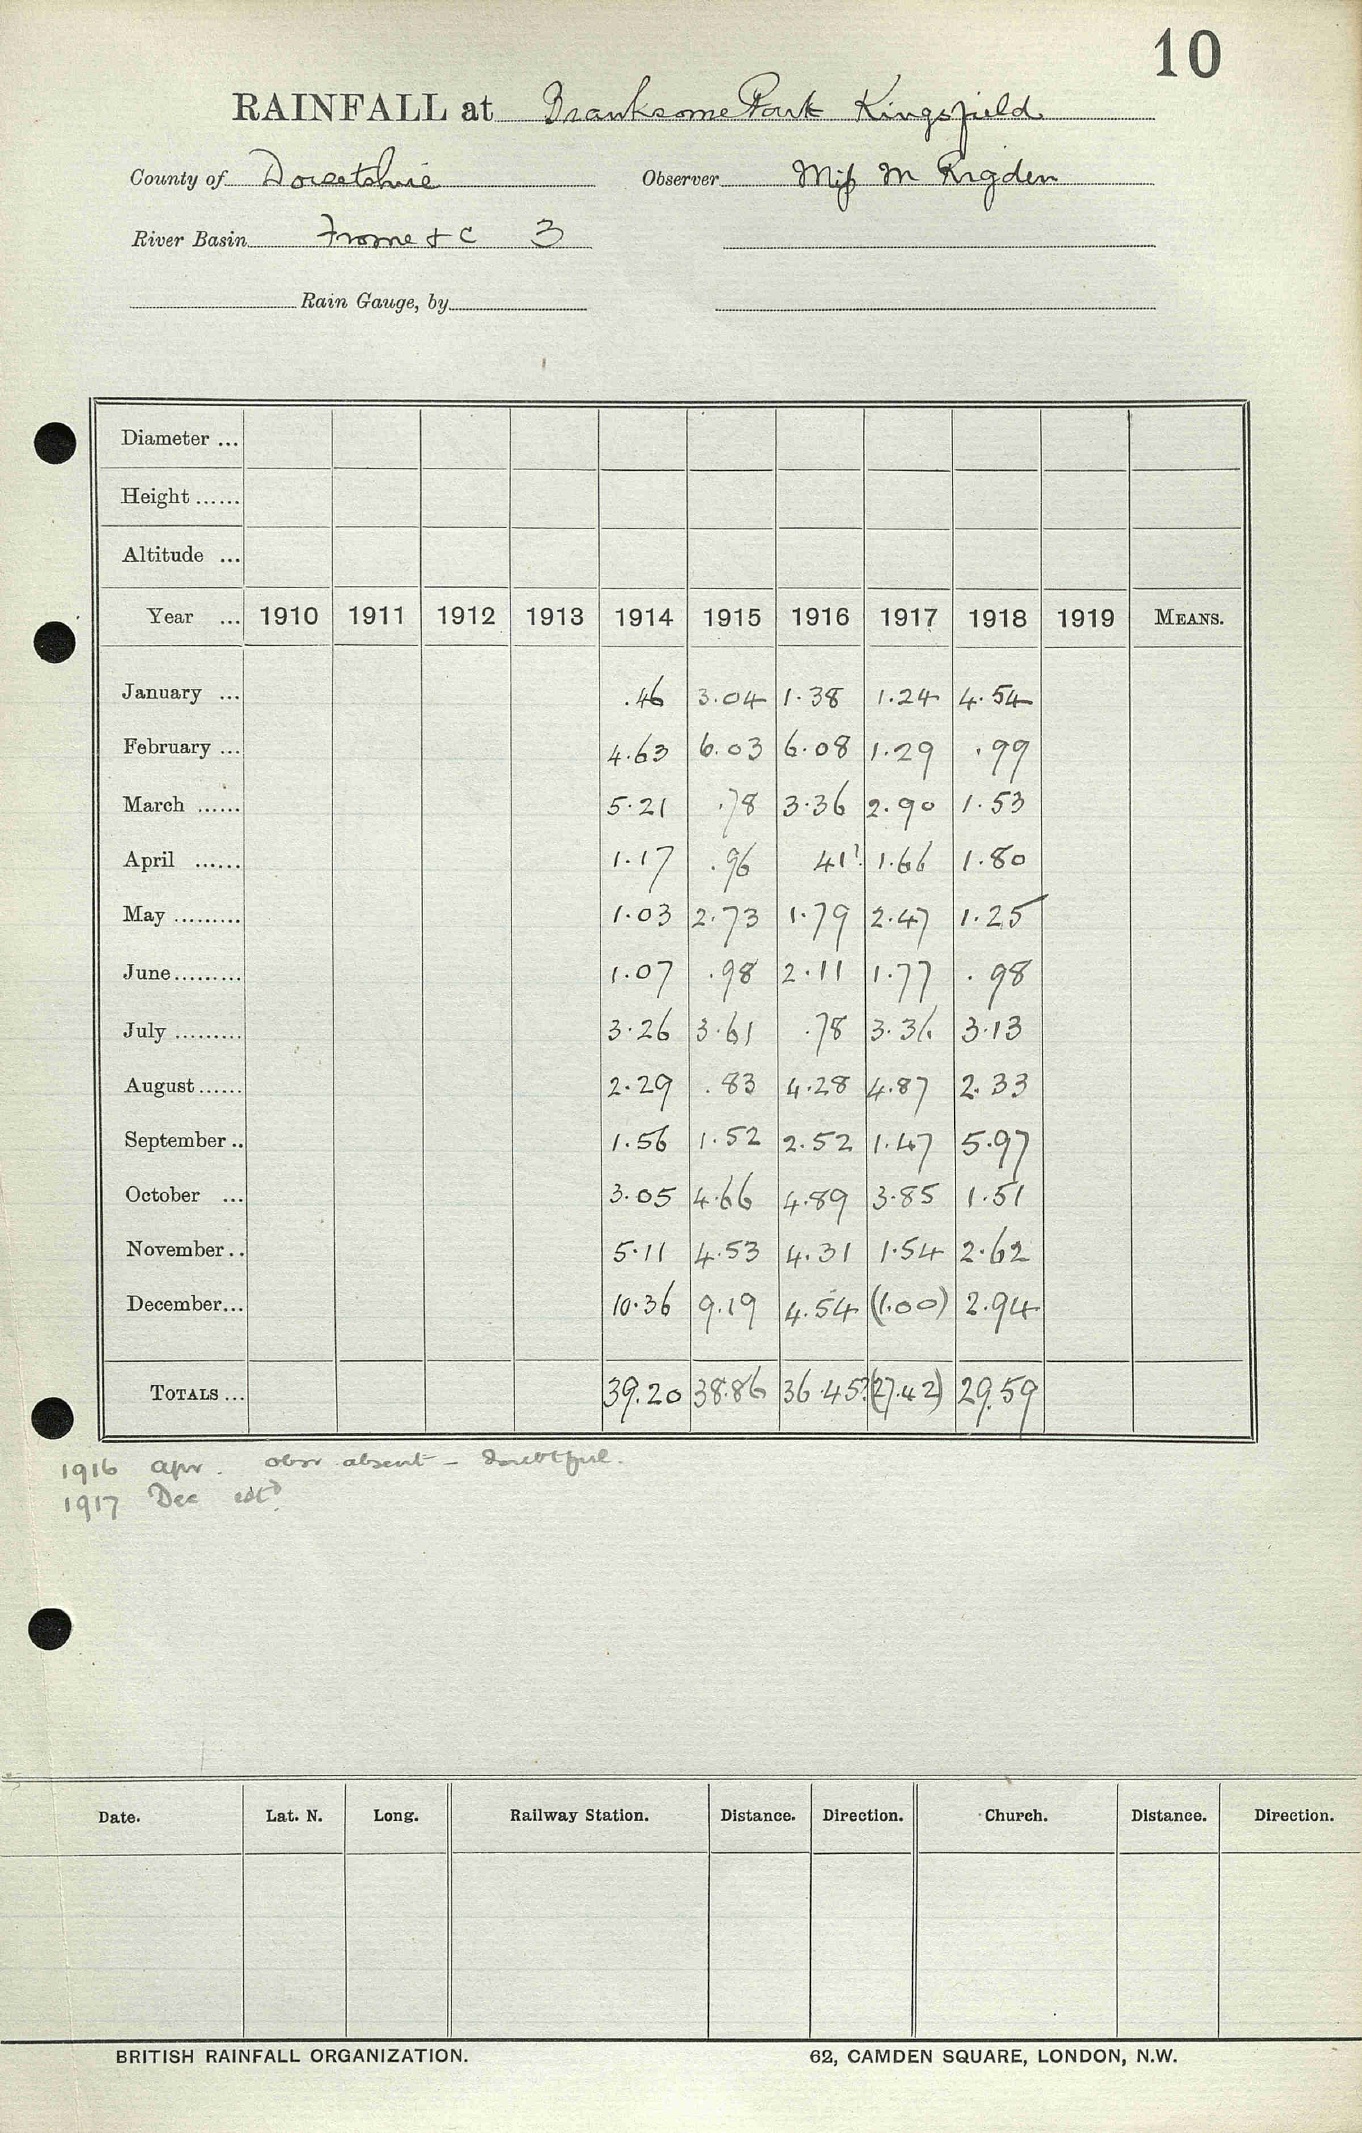 10
RAINFALL at Branksome Park Kingsfield
County of Dorsetshire Observer Miss M Rigden
River Basin Frome & C 3
Rain Gauge, by
Diameter ...
Height ......
Altitude ...
Year ... 1910 1911 1912 1913 1914 1915 1916 1917 1918 1919 MEANS.
January ... .46 3.04 1.38 1.24 4.54
February ... 4.63 6.03 6.08 1.29 .99
March ...... 5.21 .78 3.36 2.90 1.53
April ...... 1.17 .96 41? 1.66 1.80
May ......... 1.03 2.73 1.79 2.47 1.25
June......... 1.07 .98 2.11 1.77 .98
July ......... 3.26 3.61 .78 3.36 3.13
August...... 2.29 .83 4.28 4.87 2.33
September .. 1.56 1.52 2.52 1.47 5.97
October ... 3.05 4.66 4.89 3.85 1.51
November.. 5.11 4.53 4.31 1.54 2.62
December... 10.36 9.19 4.54 (1.00) 2.94
TOTALS ... 39.20 38.86 36.45? (27.42) 29.59
1916 apr. obsr absent - doubtful.
1917 Dec estd
Date. Lat. N. Long. Railway Station. Distance. Direction. Church. Distance. Direction.
BRITISH RAINFALL ORGANIZATION. 62, CAMDEN SQUARE, LONDON, N.W.